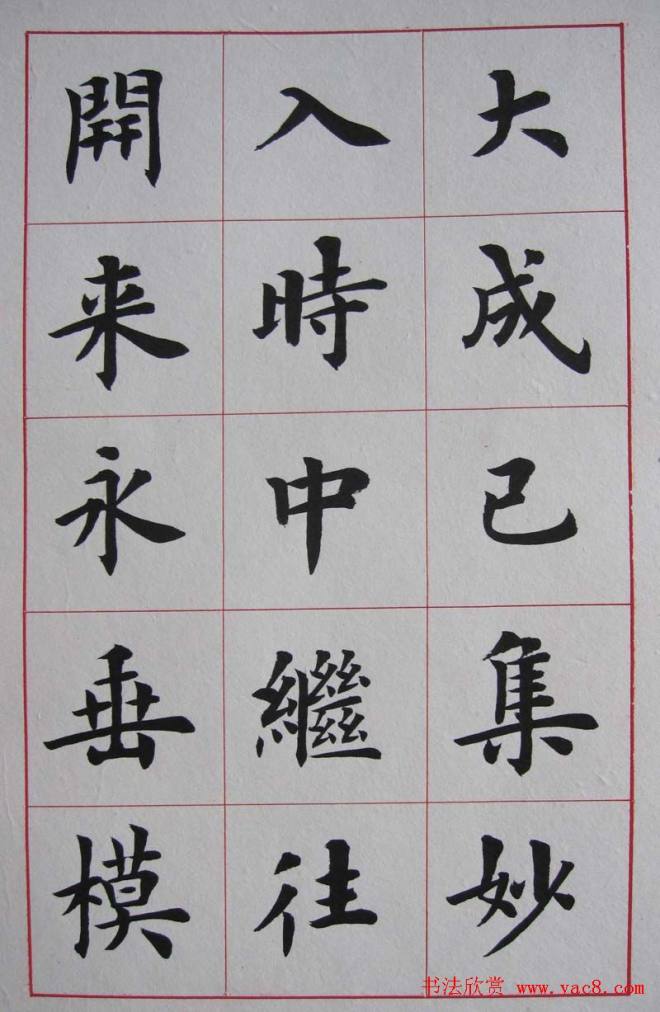 大成已集妙
入時中繼往
開来永垂模
书法欣赏 www.yac8.com